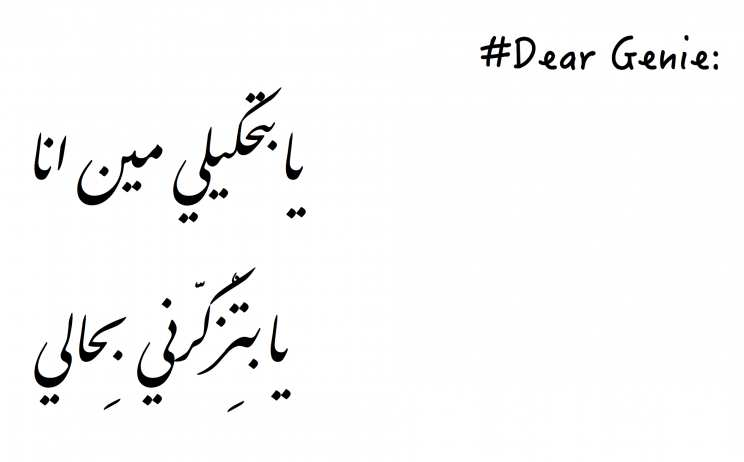 #Dear Genie:
يا بتحكيلي مين انا
يا بتِزكّرني بِحالي